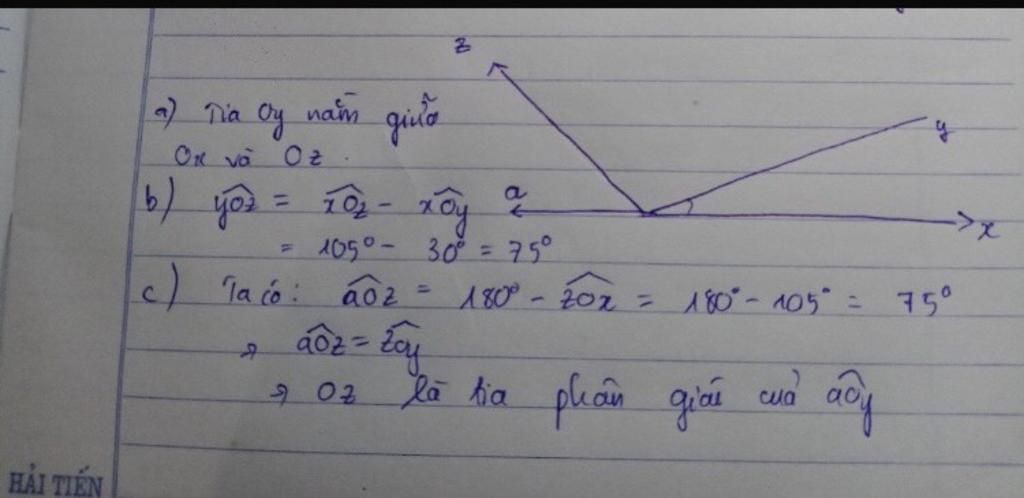 z
a) Tia Oy nằm giữa
y
Ox và Oz.
a
x
b) yÔz = xÔz - xÔy
= 105° - 30° = 75°
c) Ta có: aÔz = 180° - zÔx = 180° - 105° = 75°
→ aÔz = zÔy
→ Oz là tia phân giác của aÔy
HẢI TIẾN